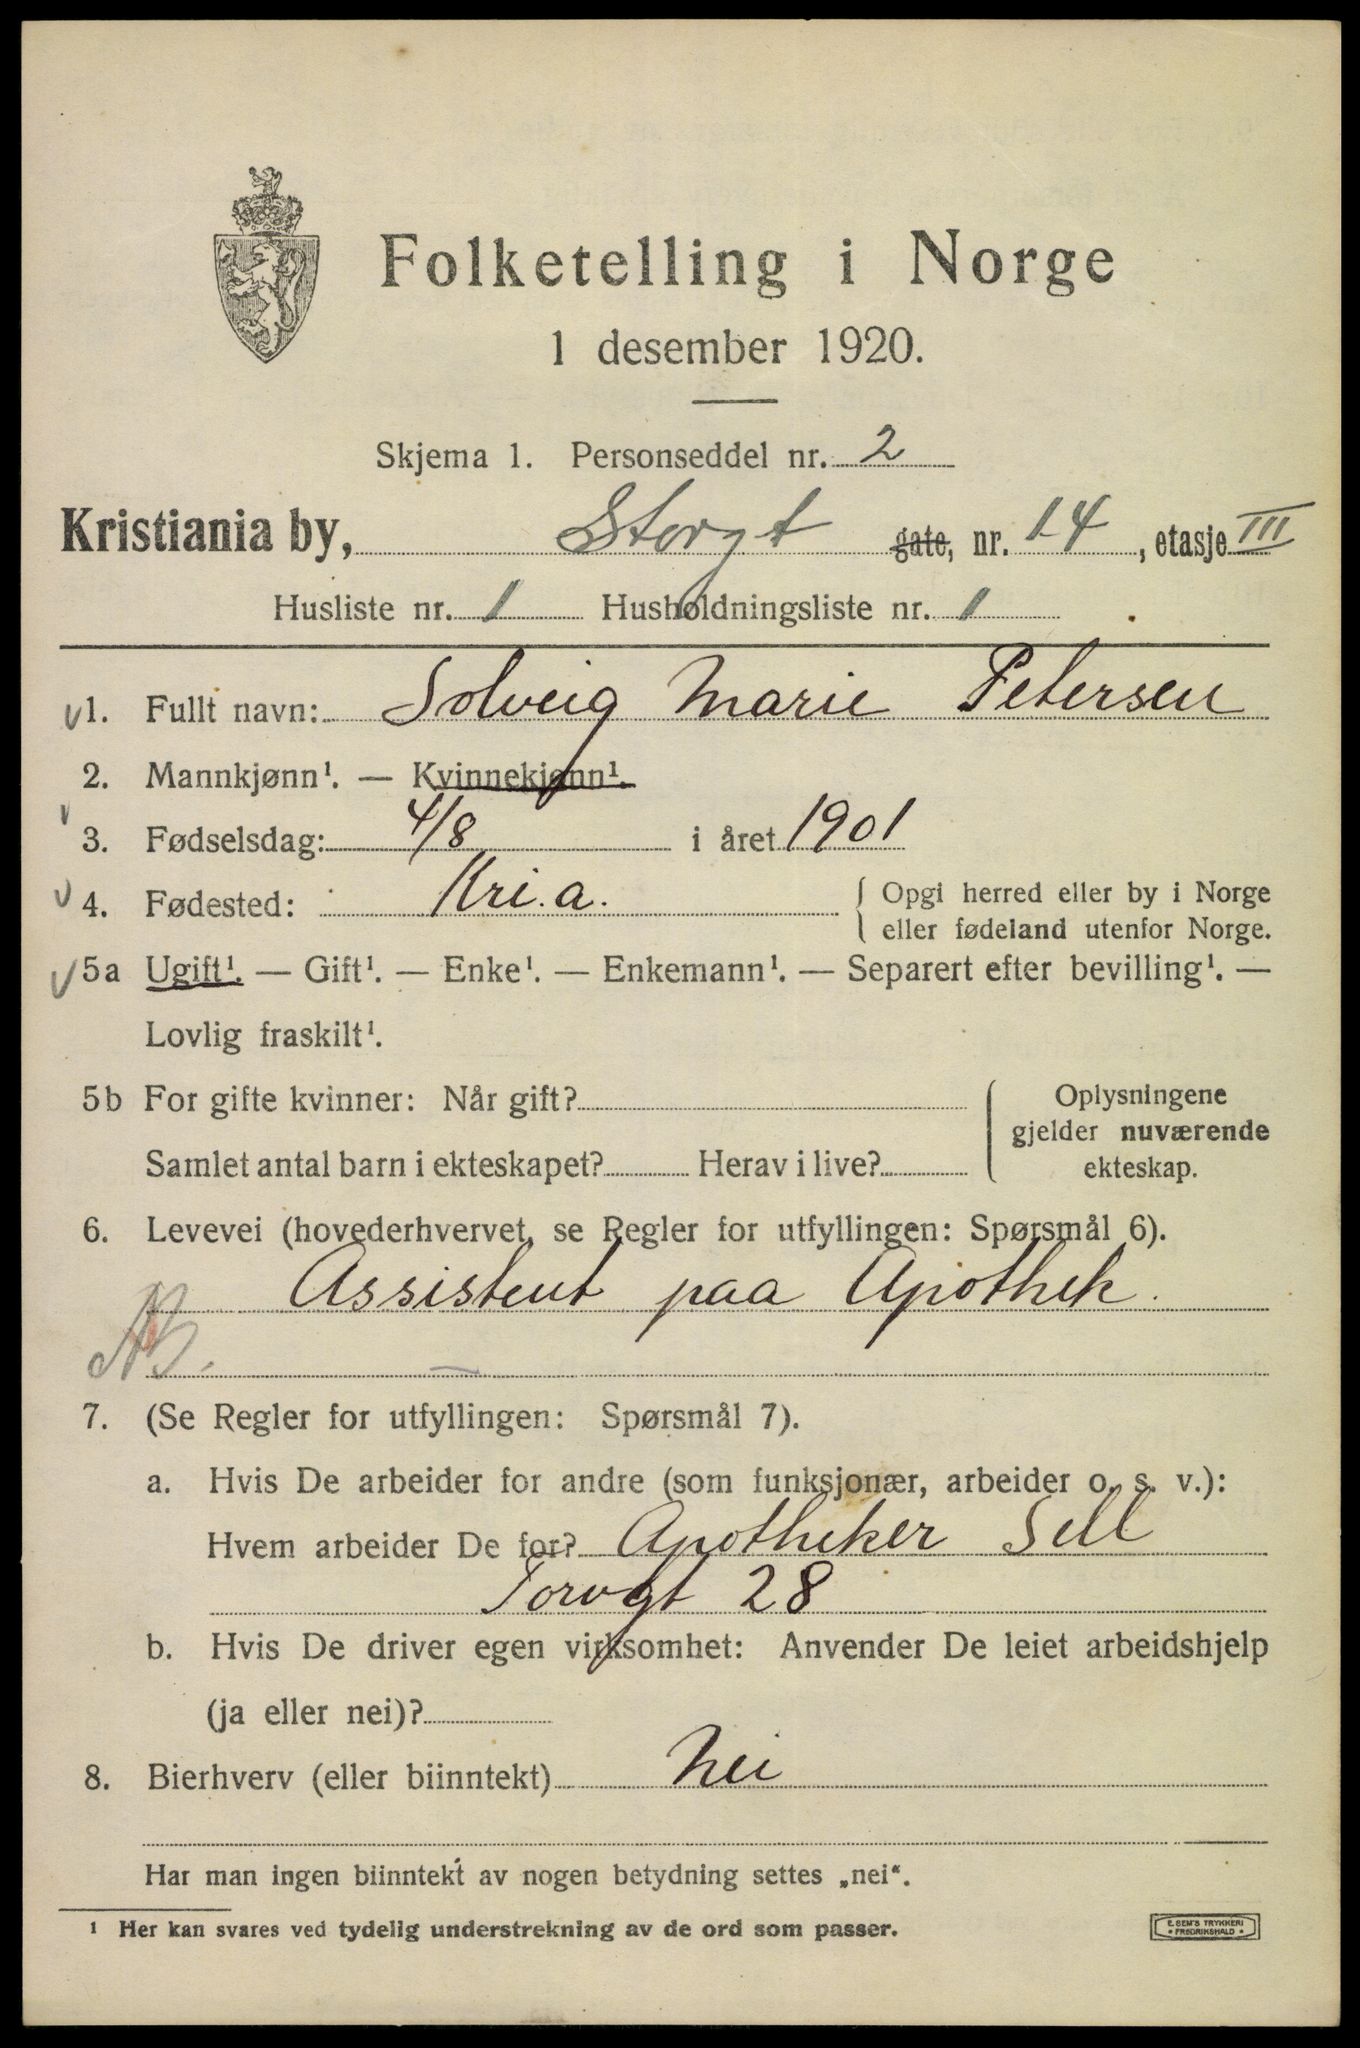 Folketelling i Norge
1 desember 1920.
Skjema 1. Personseddel nr. 2
Kristiania by, Storgt gate, nr. 14, etasje III
Husliste nr. 1 Husholdningsliste nr. 1
1. Fullt navn: Solveig Marie Petersen
2. Mannkjønn¹. — Kvinnekjønn¹.
3. Fødselsdag: 4/8 i året 1901
4. Fødested: Kri.a. { Opgi herred eller by i Norge
eller fødeland utenfor Norge.
5a Ugift¹. — Gift¹. — Enke¹. — Enkemann¹. — Separert efter bevilling¹. —
Lovlig fraskilt¹.
5b For gifte kvinner: Når gift?
Samlet antal barn i ekteskapet? Herav i live?
Oplysningene
gjelder nuværende
ekteskap.
6. Levevei (hovederhvervet, se Regler for utfyllingen: Spørsmål 6).
Assistent paa Apothek.
7. (Se Regler for utfyllingen: Spørsmål 7).
a. Hvis De arbeider for andre (som funksjonær, arbeider o. s. v.):
Hvem arbeider De for? Apotheker Sell
Torvgt 28
b. Hvis De driver egen virksomhet: Anvender De leiet arbeidshjelp
(ja eller nei)?
8. Bierhverv (eller biinntekt) Nei
Har man ingen biinntekt av nogen betydning settes „nei“.
¹ Her kan svares ved tydelig understrekning av de ord som passer.
E. SEM'S TRYKKERI
FREDRIKSHALD